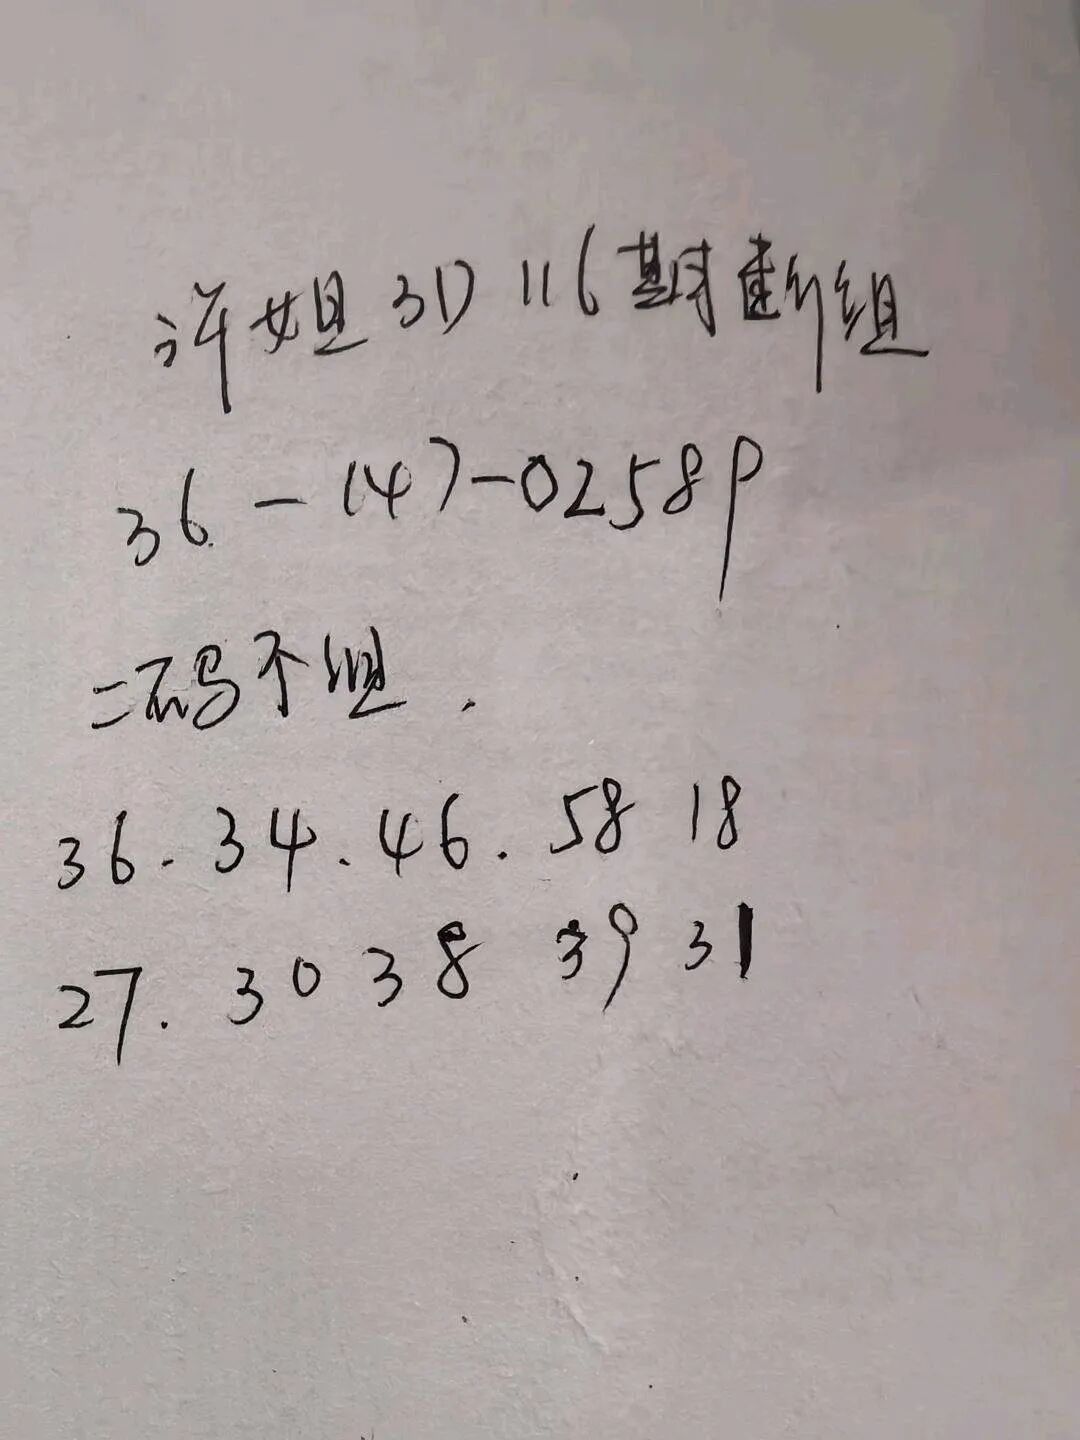 许姐3D116期重断组
36-147-02589
二码不组.
36.34.46.58 18
27.30 38 39 31